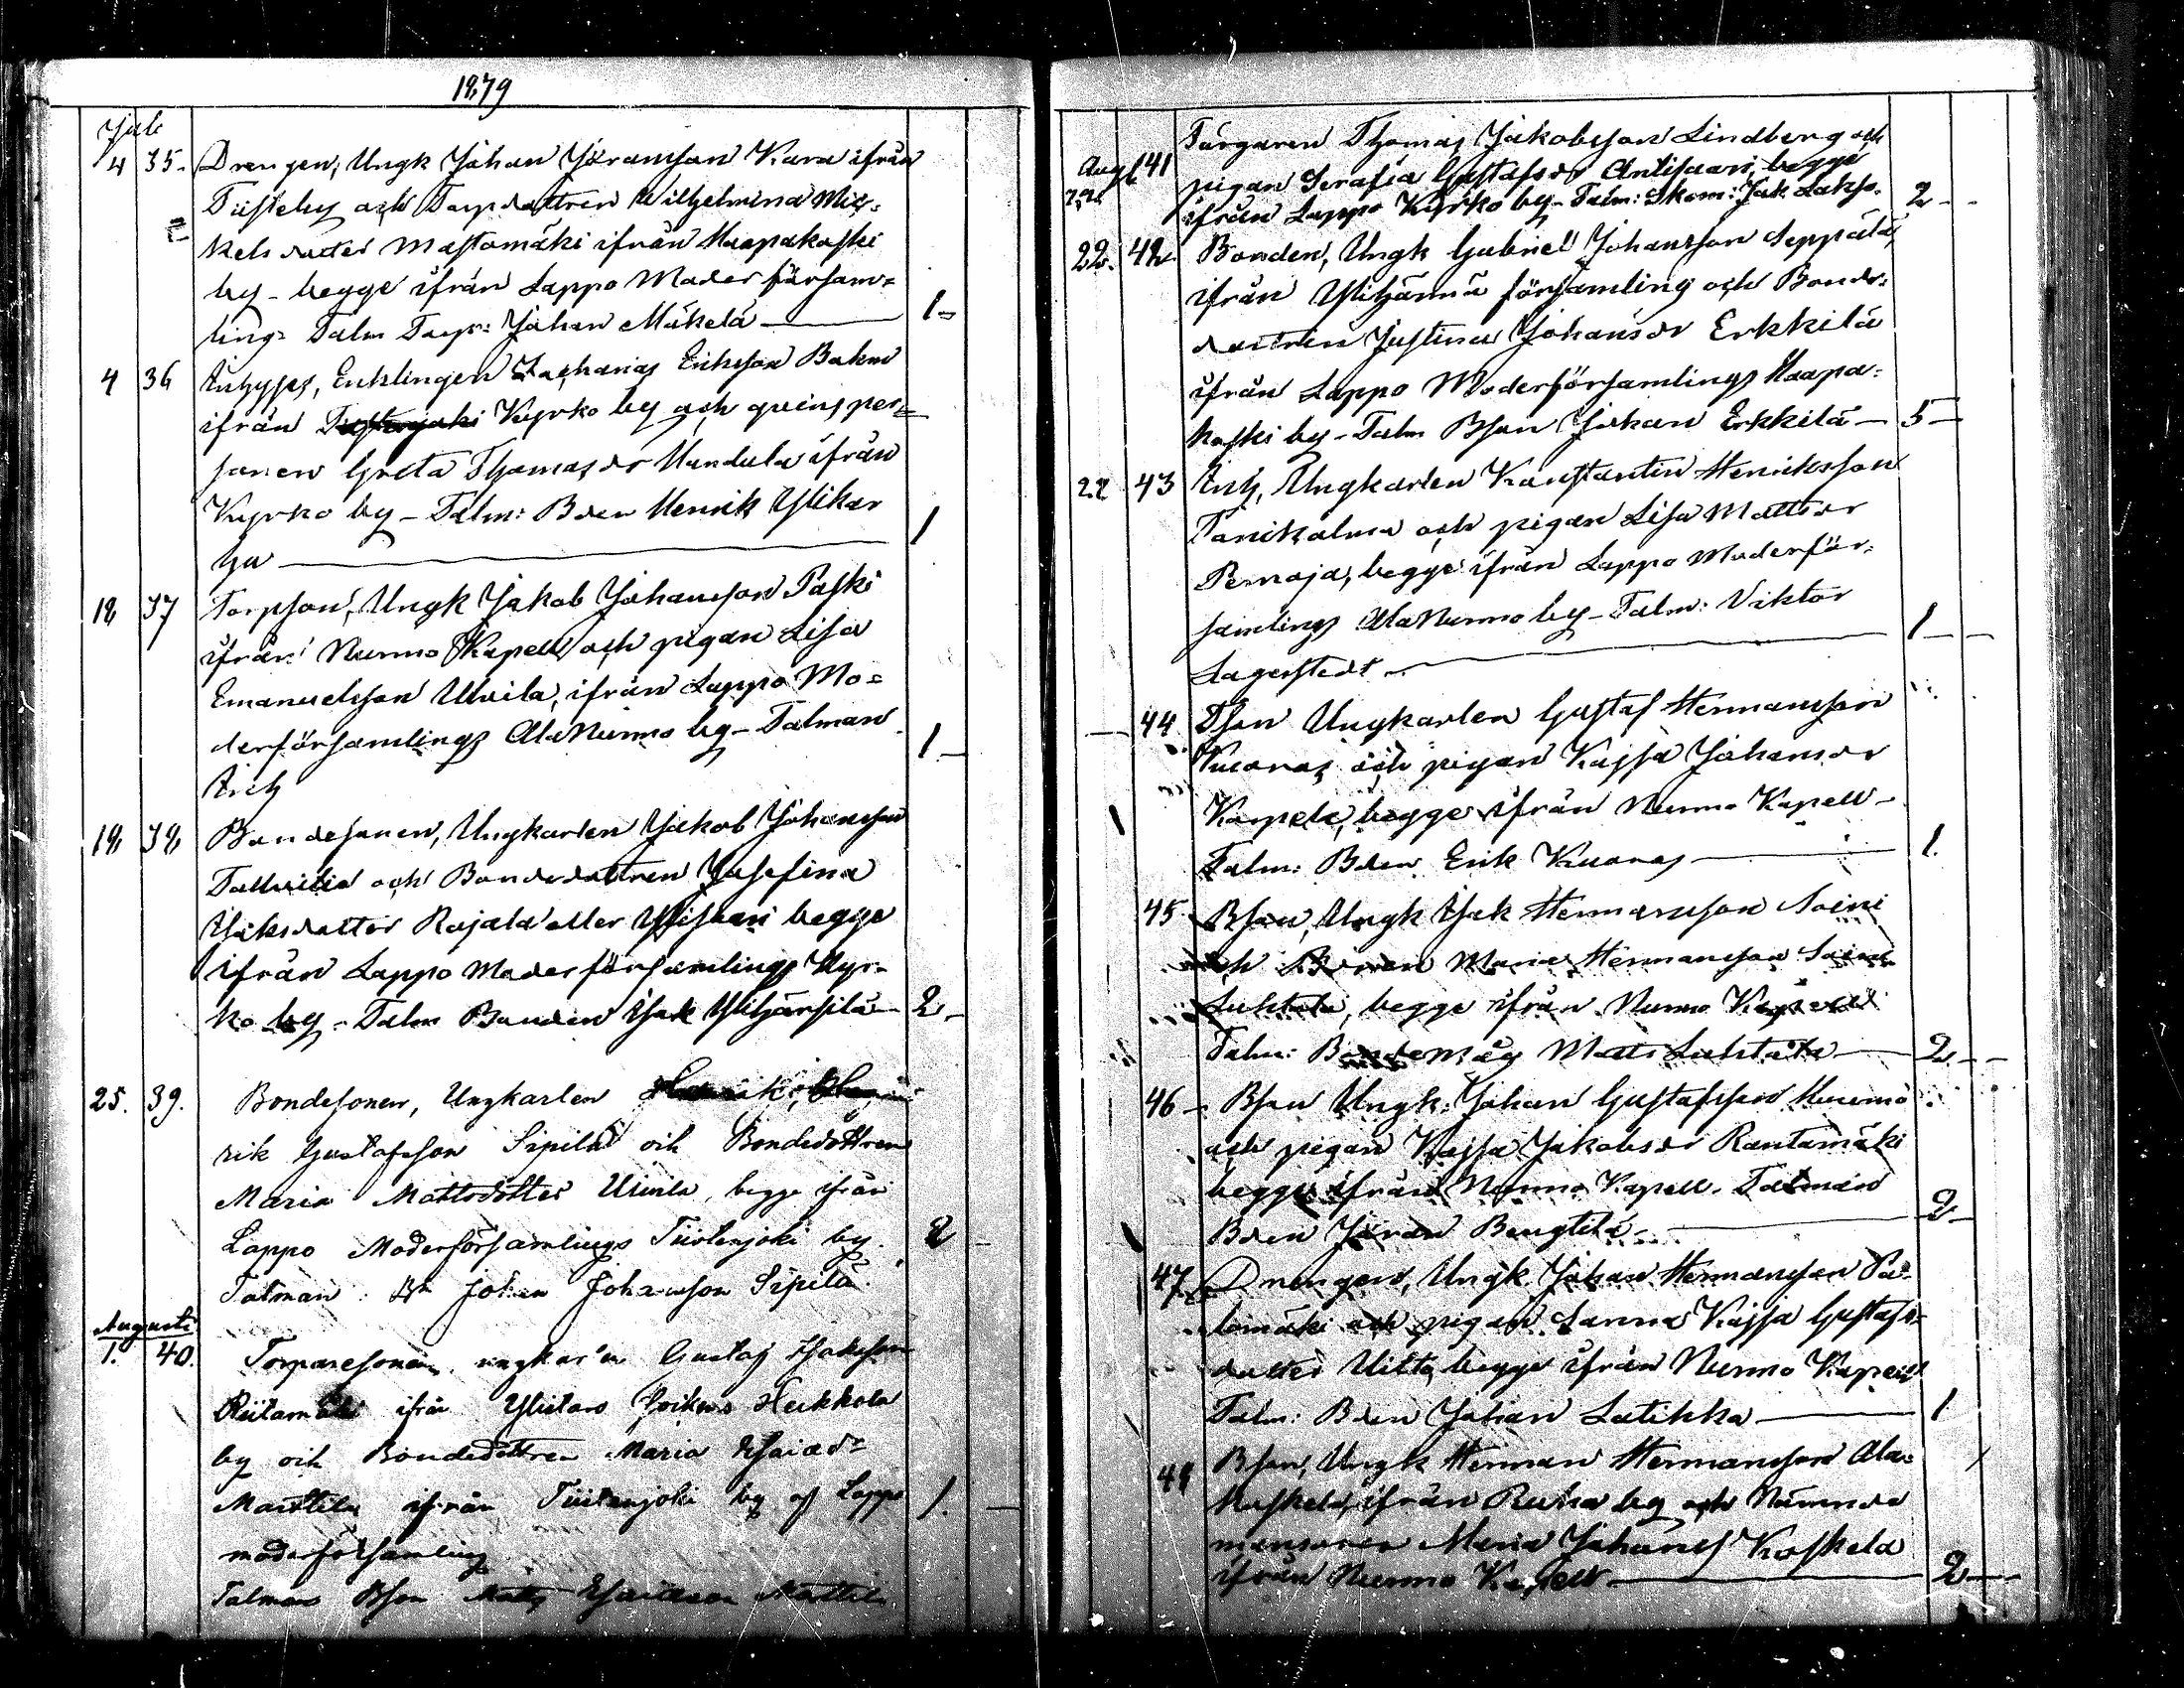 1879
Juli
4 35. Drengen, Ungk Johan Jöransson Kara ifrån
Tiisteby och Torpdottren Wilhelmina Mic-
kelsdotter Mastomäki ifrån Haapakoski
by - begge ifrån Lappo Moderförsam-
ling - Talm Torp: Johan Mäkelä — 1 -
4 36 Inhyses, Enklingen Zacharias Eriksson
ifrån Kyrko by och qvinsper-
sonen Greta Thomasdr ifrån
Kyrko by - Talm: Bden Henrik Ylikar
ha — 1
18 37 Torpson, Ungk Jakob Johansson Paski
ifrån Nurmo Kapell och pigan Lisa
Emanuelsson Uvila, ifrån Lappo Mo-
derförsamlings AlaNurmo by - Talman 1 -
Inh
18 38 Bondesonen, Ungkarlen Jakob Johansson
och Bondedottren Josefina
Isaksdotter Rajala eller begge
ifrån Lappo Moderförsamlings Kyr-
ko by - Talm Bonden Isak Ylihärsilä — 2 -
25. 39. Bondesonen, Ungkarlen
rik Gustafsson Sipilä och Bondedottren
Maria Mattsdotter begge ifrån
Lappo Moderförsamlings Tiistenjoki by. 2
Talman: Johan Johansson Sipilä
Augusti
1. 40. Torparesonen, Gustaf Isaksson
Riitamäki ifrån Ylistaro Heikkola
by och Bondedottren Maria
Marttila ifrån Tiistenjoki by af Lappo 1.
moderförsamling
Talman Bson Matts Marttila
Färgaren Thomas Jakobsson Lindberg och
Aug 41 pigan Serafia Gustafsdr Antisaari, begge
22 ifrån Lappo Kyrko by - Talm: Skom: Jak Lakso. 2 -
22. 42 Bonden, Ungk Gabriel Johansson Seppälä,
ifrån Ylihärmä församling och Bonde-
dottren Justina Johansdr Erkkilä
ifrån Lappo Moderförsamlings Haapa-
koski by - Talm Bson Johan Erkkilä — 5 -
22 43 Inh, Ungkarlen Konstantin Henriksson
och pigan Lisa Mattsdr
Pernaja, begge ifrån Lappo Moderför-
samlings AlaNurmo by - Talm: Viktor
Lagerstedt — 1 -
44 Bson Ungkarlen Gustaf Hermansson
Kuoras och pigan Kajsa Johansdr
Karpela, begge ifrån Nurmo Kapell -
Talm: Bden Erik Kuoras — 1.
45 Bson, Ungk Isak Hermansson Soini
och Maria Hermansson Soini
Luhtala, begge ifrån Nurmo Kapell
Talm: Bondemåg Matts Luhtala — 2 -
46 - Bson Ungk: Johan Gustafsson
och pigan Kajsa Jakobsdr Rantamäki
begge ifrån Nurmo Kapell. Talman
Bden Jöran Bengtila — 2 -
47 Drengen, Ungk Johan Hermansson Pa-
lomäki och pigan Sanna Kajsa Gustafs-
dotter begge ifrån Nurmo Kapell
Talm: Bden Johan Latikka — 1
48 Bson, Ungk Herman Hermansson Ala-
koskela, ifrån Ruha by och Nämnde
mansdren Maria Johans Koskela
ifrån Nurmo Kapell — 2 -